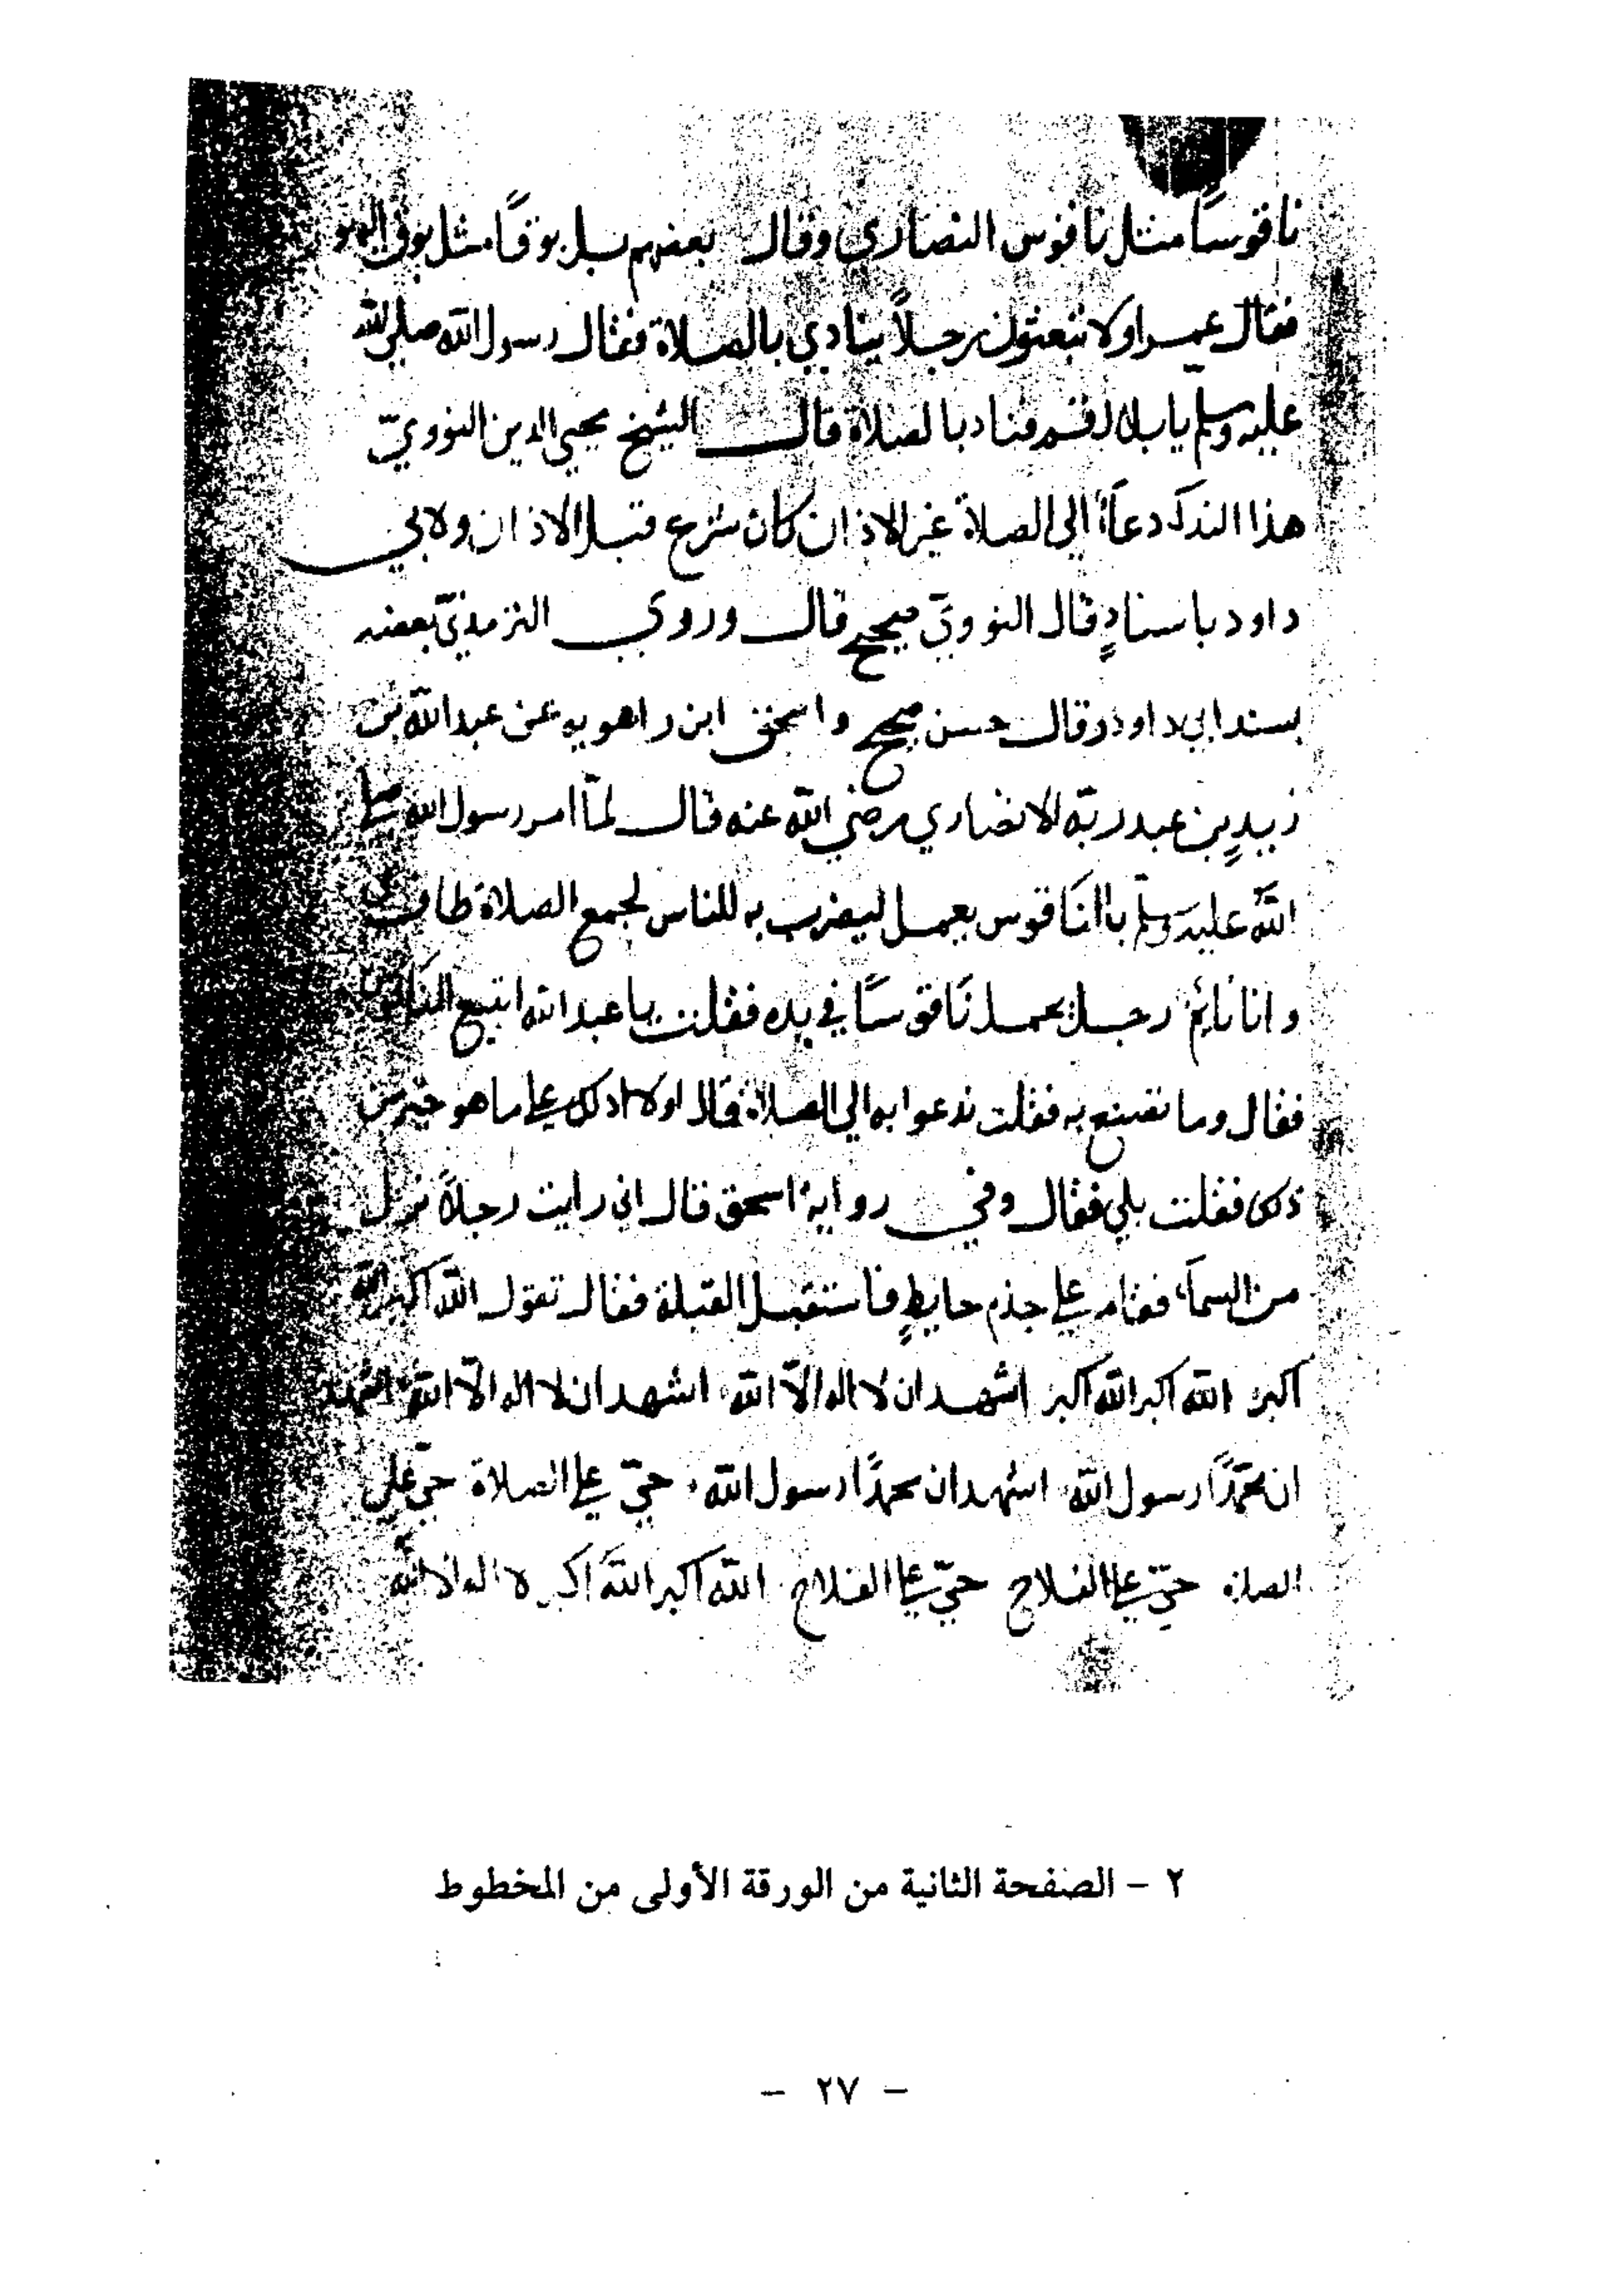 ناقوسًا مثل ناقوس النصارى وقال بعضهم بل بوقًا مثل بوق
فقال عمر اولا تبعثون رجلاً ينادي بالصلاة فقال رسول الله صلى الله
عليه وسلم يا بلال قم فناد بالصلاة قال الشيخ محيي الدين النوويّ
هذا الندا دعاءٌ الى الصلاة غير الاذان كان شرع قبل الاذان ولابي
داود باسنادٍ قال النوويّ صحيح قال وروى الترمذيّ بعضه
بسند ابي داود وقال حسن صحيح واسحق ابن راهويه عن عبد الله بن
زيدٍ بن عبد ربّه الانصاري رضي الله عنه قال لمّا امر رسول الله صلى
الله عليه وسلم بالناقوس يعمل ليضرب به للناس لجمع الصلاة طاف
وانا نائمٌ رجل يحمل ناقوسًا في يده فقلت يا عبد الله اتبيع
فقال وما تصنع به فقلت ندعوا به الى الصلاة قال اولا ادلك على ما هو خير من
ذلك فقلت بلى فقال وفي رواية اسحق قال اني رايت رجلاً نزل
من السماء فقام على جذم حايطٍ فاستقبل القبلة فقال تقول الله اكبر الله
اكبر الله اكبر الله اكبر اشهد ان لا اله الاّ الله اشهد ان لا اله الاّ الله اشهد
ان محمّدًا رسول الله اشهد ان محمدًا رسول الله حيّ على الصلاة حيّ على
الصلاة حيّ على الفلاح حيّ على الفلاح الله اكبر الله اكبر لا اله الا الله
٢ - الصفحة الثانية من الورقة الأولى من المخطوط
- ٢٧ -